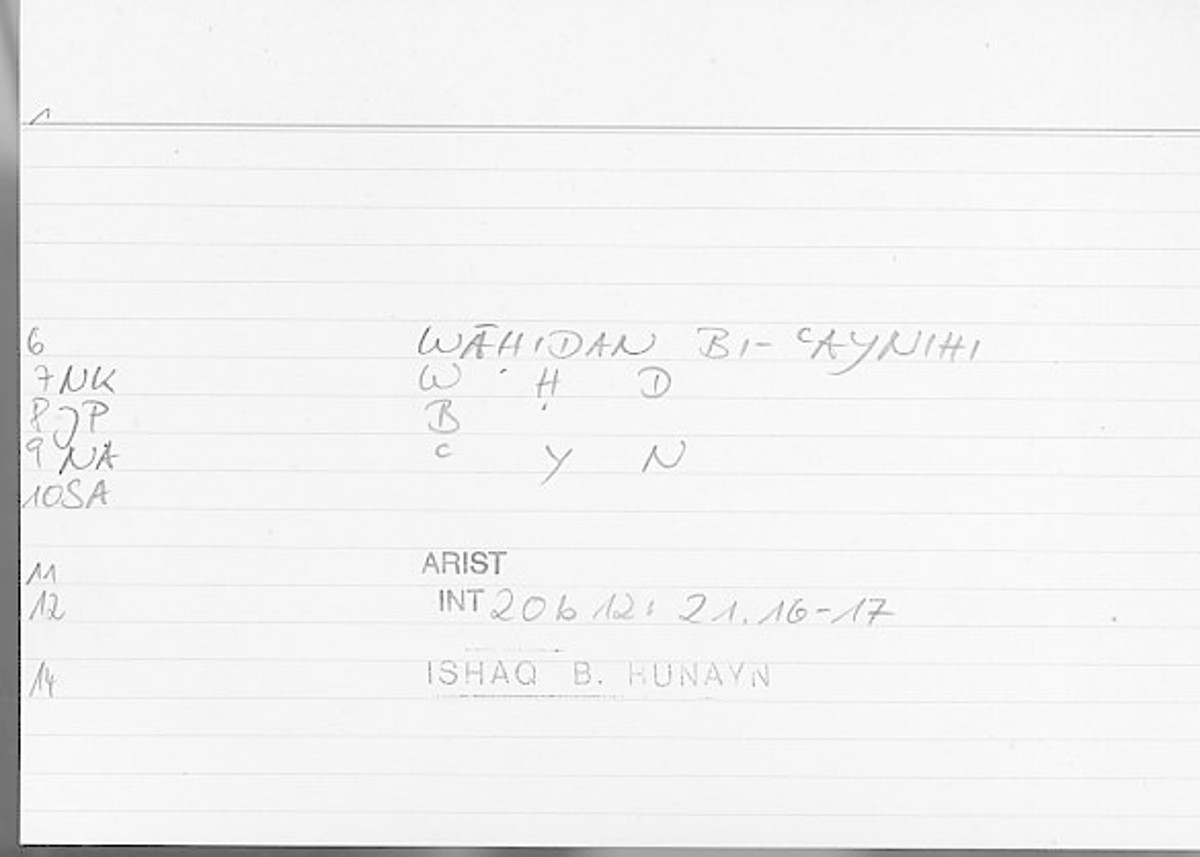 1
6 WĀḤIDAN BI-ʿAYNIHI
7NK W Ḥ D
8JP B
9 NA ʿ Y N
10SA
11 ARIST
12 INT 20b 12: 21.16-17
14 ISHAQ B. HUNAYN